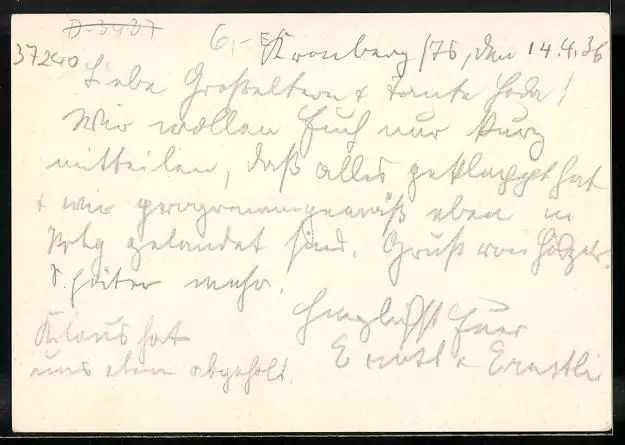 D-3437
37240
6,- E5
Kronberg /TS, den 14.4.36
Liebe Großeltern + Tante Hoda!
Wir wollen Euch nur kurz
mitteilen, daß alles geklappt hat
+ wir programmgemäß eben in
gelandet sind. Gruß von
Später mehr.
Herzlichst Euer
Ernstli
Klaus hat
uns eben abgeholt.